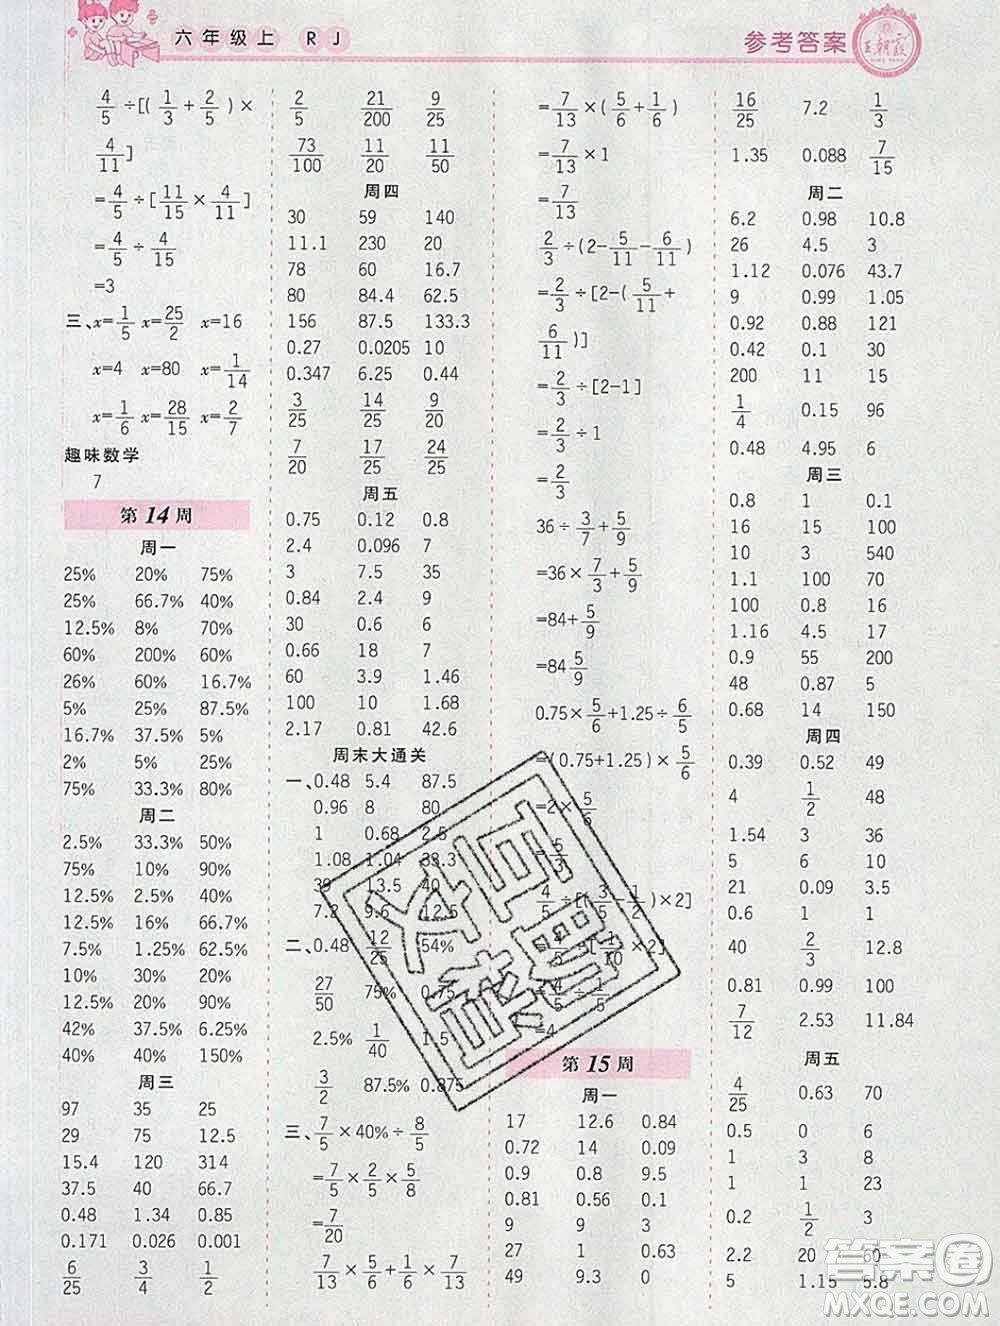 六年级上 RJ
参考答案
王朝霞
4/5÷[(1/3+2/5)×
4/11]
=4/5÷[11/15×4/11]
=4/5÷4/15
=3
三、x=1/5 x=25/2 x=16
x=4 x=80 x=1/14
x=1/6 x=28/15 x=2/7
趣味数学
7
第14周
周一
25% 20% 75%
25% 66.7% 40%
12.5% 8% 70%
60% 200% 60%
26% 60% 16.7%
5% 25% 87.5%
16.7% 37.5% 5%
2% 5% 25%
75% 33.3% 80%
周二
2.5% 33.3% 50%
75% 10% 90%
12.5% 2.5% 25%
12.5% 16% 40%
7.5% 1.25% 62.5%
10% 60% 12%
60% 80% 25%
42% 37.5% 6.25%
40% 40% 150%
周三
97 35 25
29 75 12.5
15.4 120 314
37.5 40 66.7
0.48 1.34 0.85
0.171 0.026 0.001
6/25 3/4 1/2
2/5 21/200 9/25
73/100 11/20 11/50
周四
30 59 140
11.1 230 20
78 60 16.7
80 84.4 62.5
156 87.5 133.3
0.27 0.0205 10
0.347 6.25 0.44
3/25 14/25 9/20
7/20 17/25 11/20
周五
0.75 0.12 0.8
2.4 0.096 7
3 7.5 35
0.84 2.4 9
30 0.6 15
0.66 18 7
60 3.9 1.46
100 10 1.68
2.17 0.81 42.6
周末大通关
一、0.48 5.4 87.5
0.96 8 80
1 0.68 2.5
1.08 1.04 33.3
39 13.5 40
7.2 9.6 12.5
二、0.48 12/25 54%
27/50 75% 0.75
2.5% 1/40 1.5
3/2 87.5% 0.875
三、7/5×40%÷8/5
=7/5×2/5×5/8
=7/20
7/13×5/6+1/6×7/13
=7/13×(5/6+1/6)
=7/13×1
=7/13
2/3÷(2-5/11-6/11)
=2/3÷[2-(5/11+
6/11)]
=2/3÷[2-1]
=2/3÷1
=2/3
36÷3/7+5/9
=36×7/3+5/9
=84+5/9
=84 5/9
0.75×5/6+1.25÷6/5
=(0.75+1.25)×5/6
=2×5/6
=5/3
4/5÷[(3/5-1/2)×2]
=4/5÷[1/10×2]
=4/5÷1/5
=4
第15周
周一
17 12.6 0.84
0.72 14 0.09
0.9 0.8 9.5
0.81 0.56 0.51
9 9 3
27 1 0.63
49 0.3 0.45
16/25 7.2 1/3
1.35 0.088 7/15
周二
6.2 0.98 10.8
26 4.5 3
1.12 0.076 43.7
9 0.99 1.05
0.92 0.88 121
0.42 0.1 30
200 11 15
1/4 0.15 96
0.48 4.95 6
周三
0.8 1 0.1
16 15 100
10 3 540
1.1 100 70
100 0.8 16
1.16 4.5 17
0.9 55 200
48 0.87 5
0.68 14 150
周四
0.39 0.52 49
4 1/2 48
1.54 3 36
5 6 10
21 0.09 0.5
0.6 1 2
40 2/3 12.8
0.81 0.99 100
7/12 2.53 11.84
周五
4/25 0.63 70
0.5 0 6
1 3 8
1 1 23
0.2 1/2 3
2.2 20 60
5 1.15 5.8
答案圈
MXQE.COM